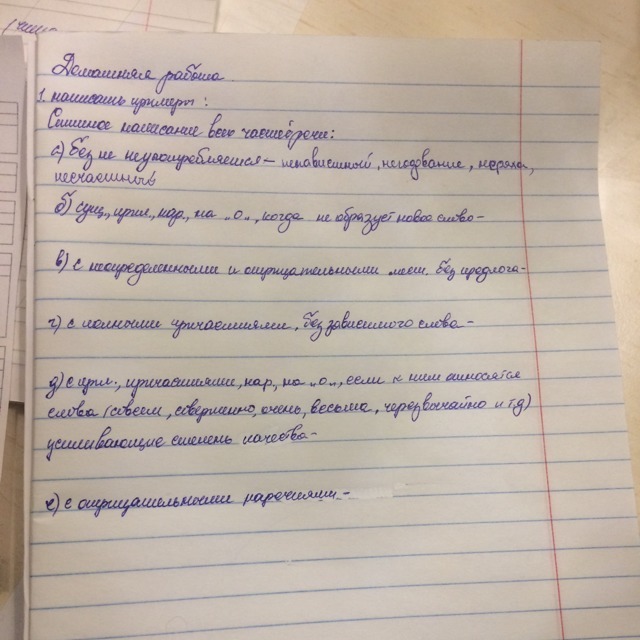 Домашняя работа
1. написать примеры:
Слитное написание всех частей речи:
а) без не не употребляется – ненавистный, негодование, неряха,
несчастный
б) сущ., прил., нар., на „о„, когда не образует новое слово –
в) с неопределенными и отрицательными мест. без предлога –
г) с полными причастиями, без зависимого слова –
д) с прил., причастиями, нар, на „о„, если к ним относятся
слова (совсем, совершенно, очень, весьма, черезвычайно и т.д)
усиливающие степень качества –
е) с отрицательными наречиями –